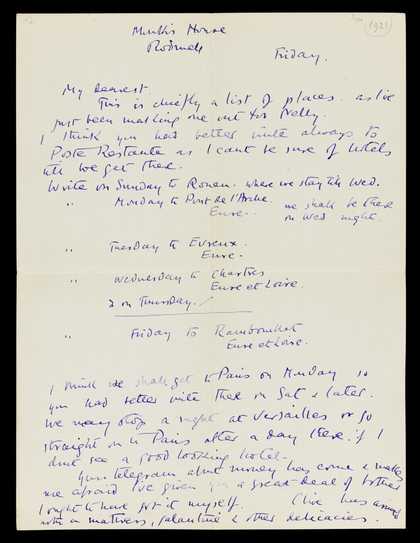 (1921)
Monks House
Rodmell
Friday.
My dearest
This is chiefly a list of places. as I've
just been making one out for Nelly.
I think you had better write always to
Poste Restante as I cant be sure of hotels
till we get there.
Write on Sunday to Rouen. where we stay till Wed.
" Monday to Pont de l'Arche. we shall be there
Eure. on Wed night.
" Tuesday to Evreux.
Eure.
" Wednesday to Chartres
Eure et Loire.
& on Thursday.
" Friday to Rambouillet
Eure et Loire.
I think we shall get to Paris on Monday so
you had better write there on Sat & later.
We may stop a night at Versailles or go
straight on to Paris after a day there if I
dont see a good looking hotel.
Your telegram about money has come & makes
me afraid I've given you a great deal of bother
I ought to have got it myself. Clive has
with a mattress, galantine & other delicacies.